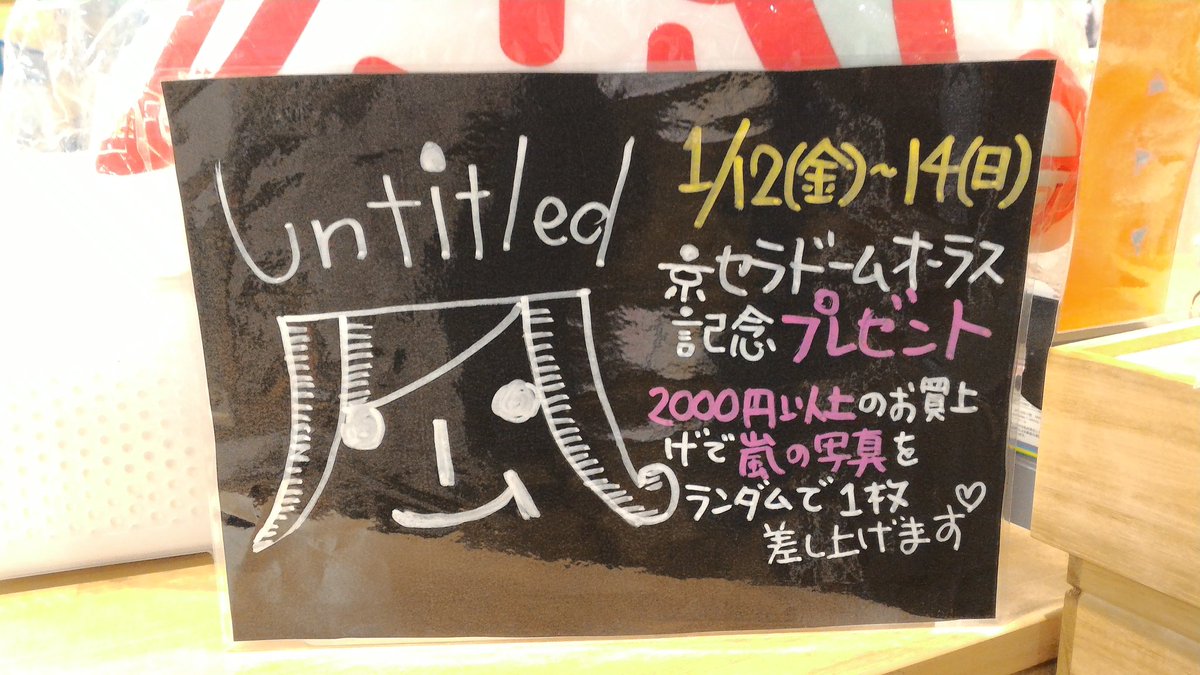 untitled
1/12(金)~14(日)
京セラドームオーラス
記念プレゼント
2000円以上のお買上
げで嵐の写真を
ランダムで1枚
差し上げます♡